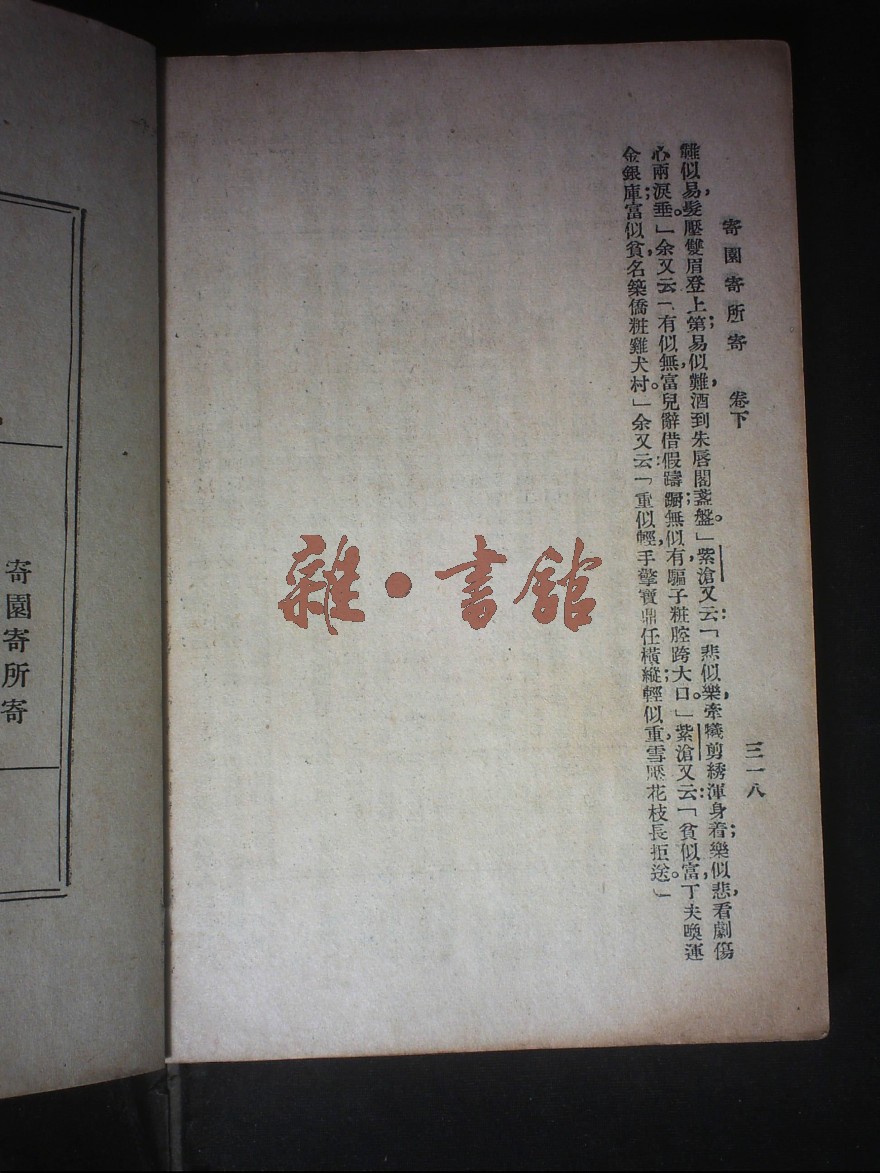 寄園寄所寄　卷下
三一八
難似易，髮壓雙眉登上第；易似難，酒到朱唇閣盞盤。」紫滄又云：「悲似樂，牽犧剪綉渾身着；樂似悲，看劇傷
心兩淚垂。」余又云：「有似無，富兒辭借假躊躕；無似有，騙子粧腔跨大口。」紫滄又云：「貧似富，丁夫喚運
金銀庫；富似貧，名築僑粧雞犬村。」余又云：「重似輕，手擎寶鼎任橫縱；輕似重，雪壓花枝長拒送。」
寄園寄所寄
雜·書館